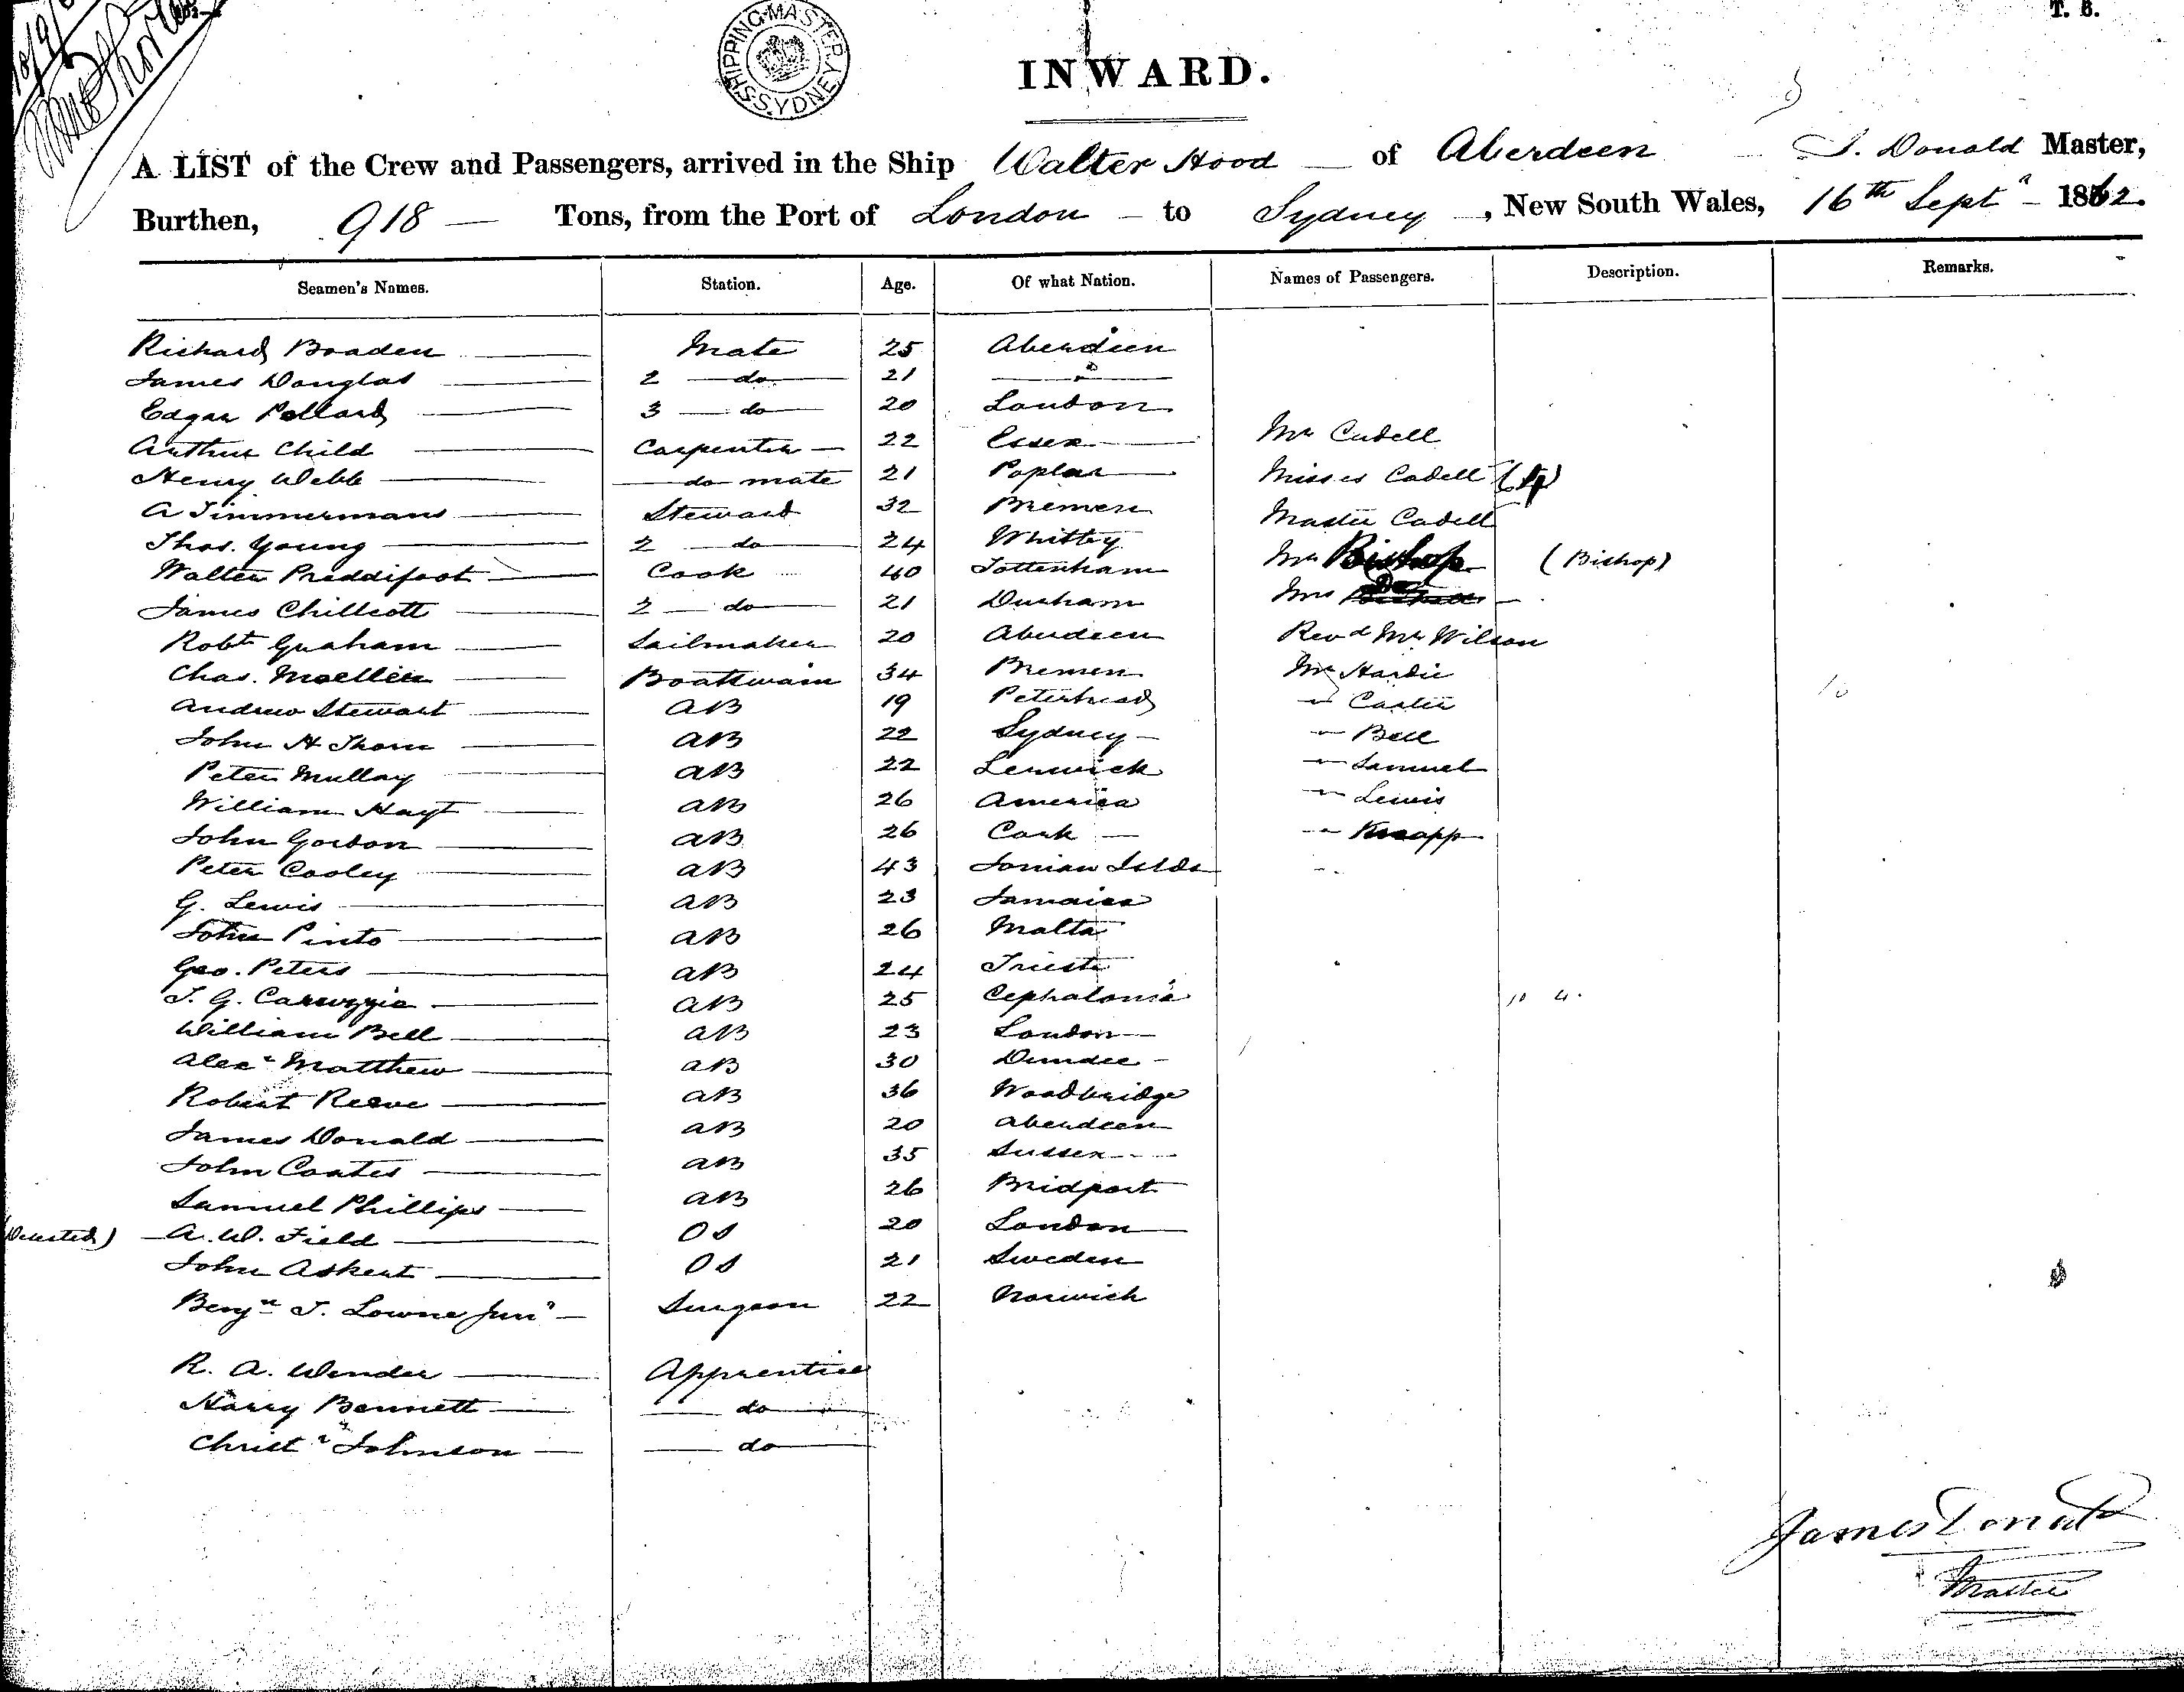 T. 6.
SHIPPING MASTER SYDNEY
INWARD.
A LIST of the Crew and Passengers, arrived in the Ship Walter Hood — of Aberdeen J. Donald Master,
Burthen, 918 — Tons, from the Port of London – to Sydney –, New South Wales, 16th Septr – 1862.
Seamen's Names. Station. Age. Of what Nation. Names of Passengers. Description. Remarks.
Richard Boaden Mate 25 Aberdeen
James Douglas 2 do 21 "
Edgar Pollard 3 do 20 London
Arthur Child Carpenter 22 Essex Mr Cadell
Henry Webb do mate 21 Poplar Misses Cadell (4)
A Timmermans Steward 32 Bremen Master Cadell
Thos. Young 2 do 24 Whitby Mr Bishop (Bishop)
Walter Preddifoot Cook 40 Tottenham Mrs Do
James Chillcott 2 do 21 Durham
Robt Graham Sailmaker 20 Aberdeen Revd Mr Wilson
Chas. Moeller Boatswain 34 Bremen Mr Hardie
Andrew Stewart AB 19 Peterhead " Carter
John H Thom AB 22 Sydney " Bell
Peter Mullay AB 22 Lerwick " Samuel
William Hayt AB 26 America " Lewis
John Gordon AB 26 Cork " Knapp
Peter Cooley AB 43 Ionian Islds
G. Lewis AB 23 Jamaica
John Pinto AB 26 Malta
Geo. Peters AB 24 Trieste
J. G. AB 25 Cephalonia
William Bell AB 23 London
Alexr Matthew AB 30 Dundee
Robert Reeve AB 36 Woodbridge
James Donald AB 20 Aberdeen
John Coates AB 35 Sussex
Samuel Phillips AB 26 Bridport
(Deserted) A. W. Field OS 20 London
John Askent OS 21 Sweden
Benjn T. Lowne Junr Surgeon 22 Norwich
R. A. Wender Apprentice
Harry Bennett do
Christr Johnson do
James Donald
Master